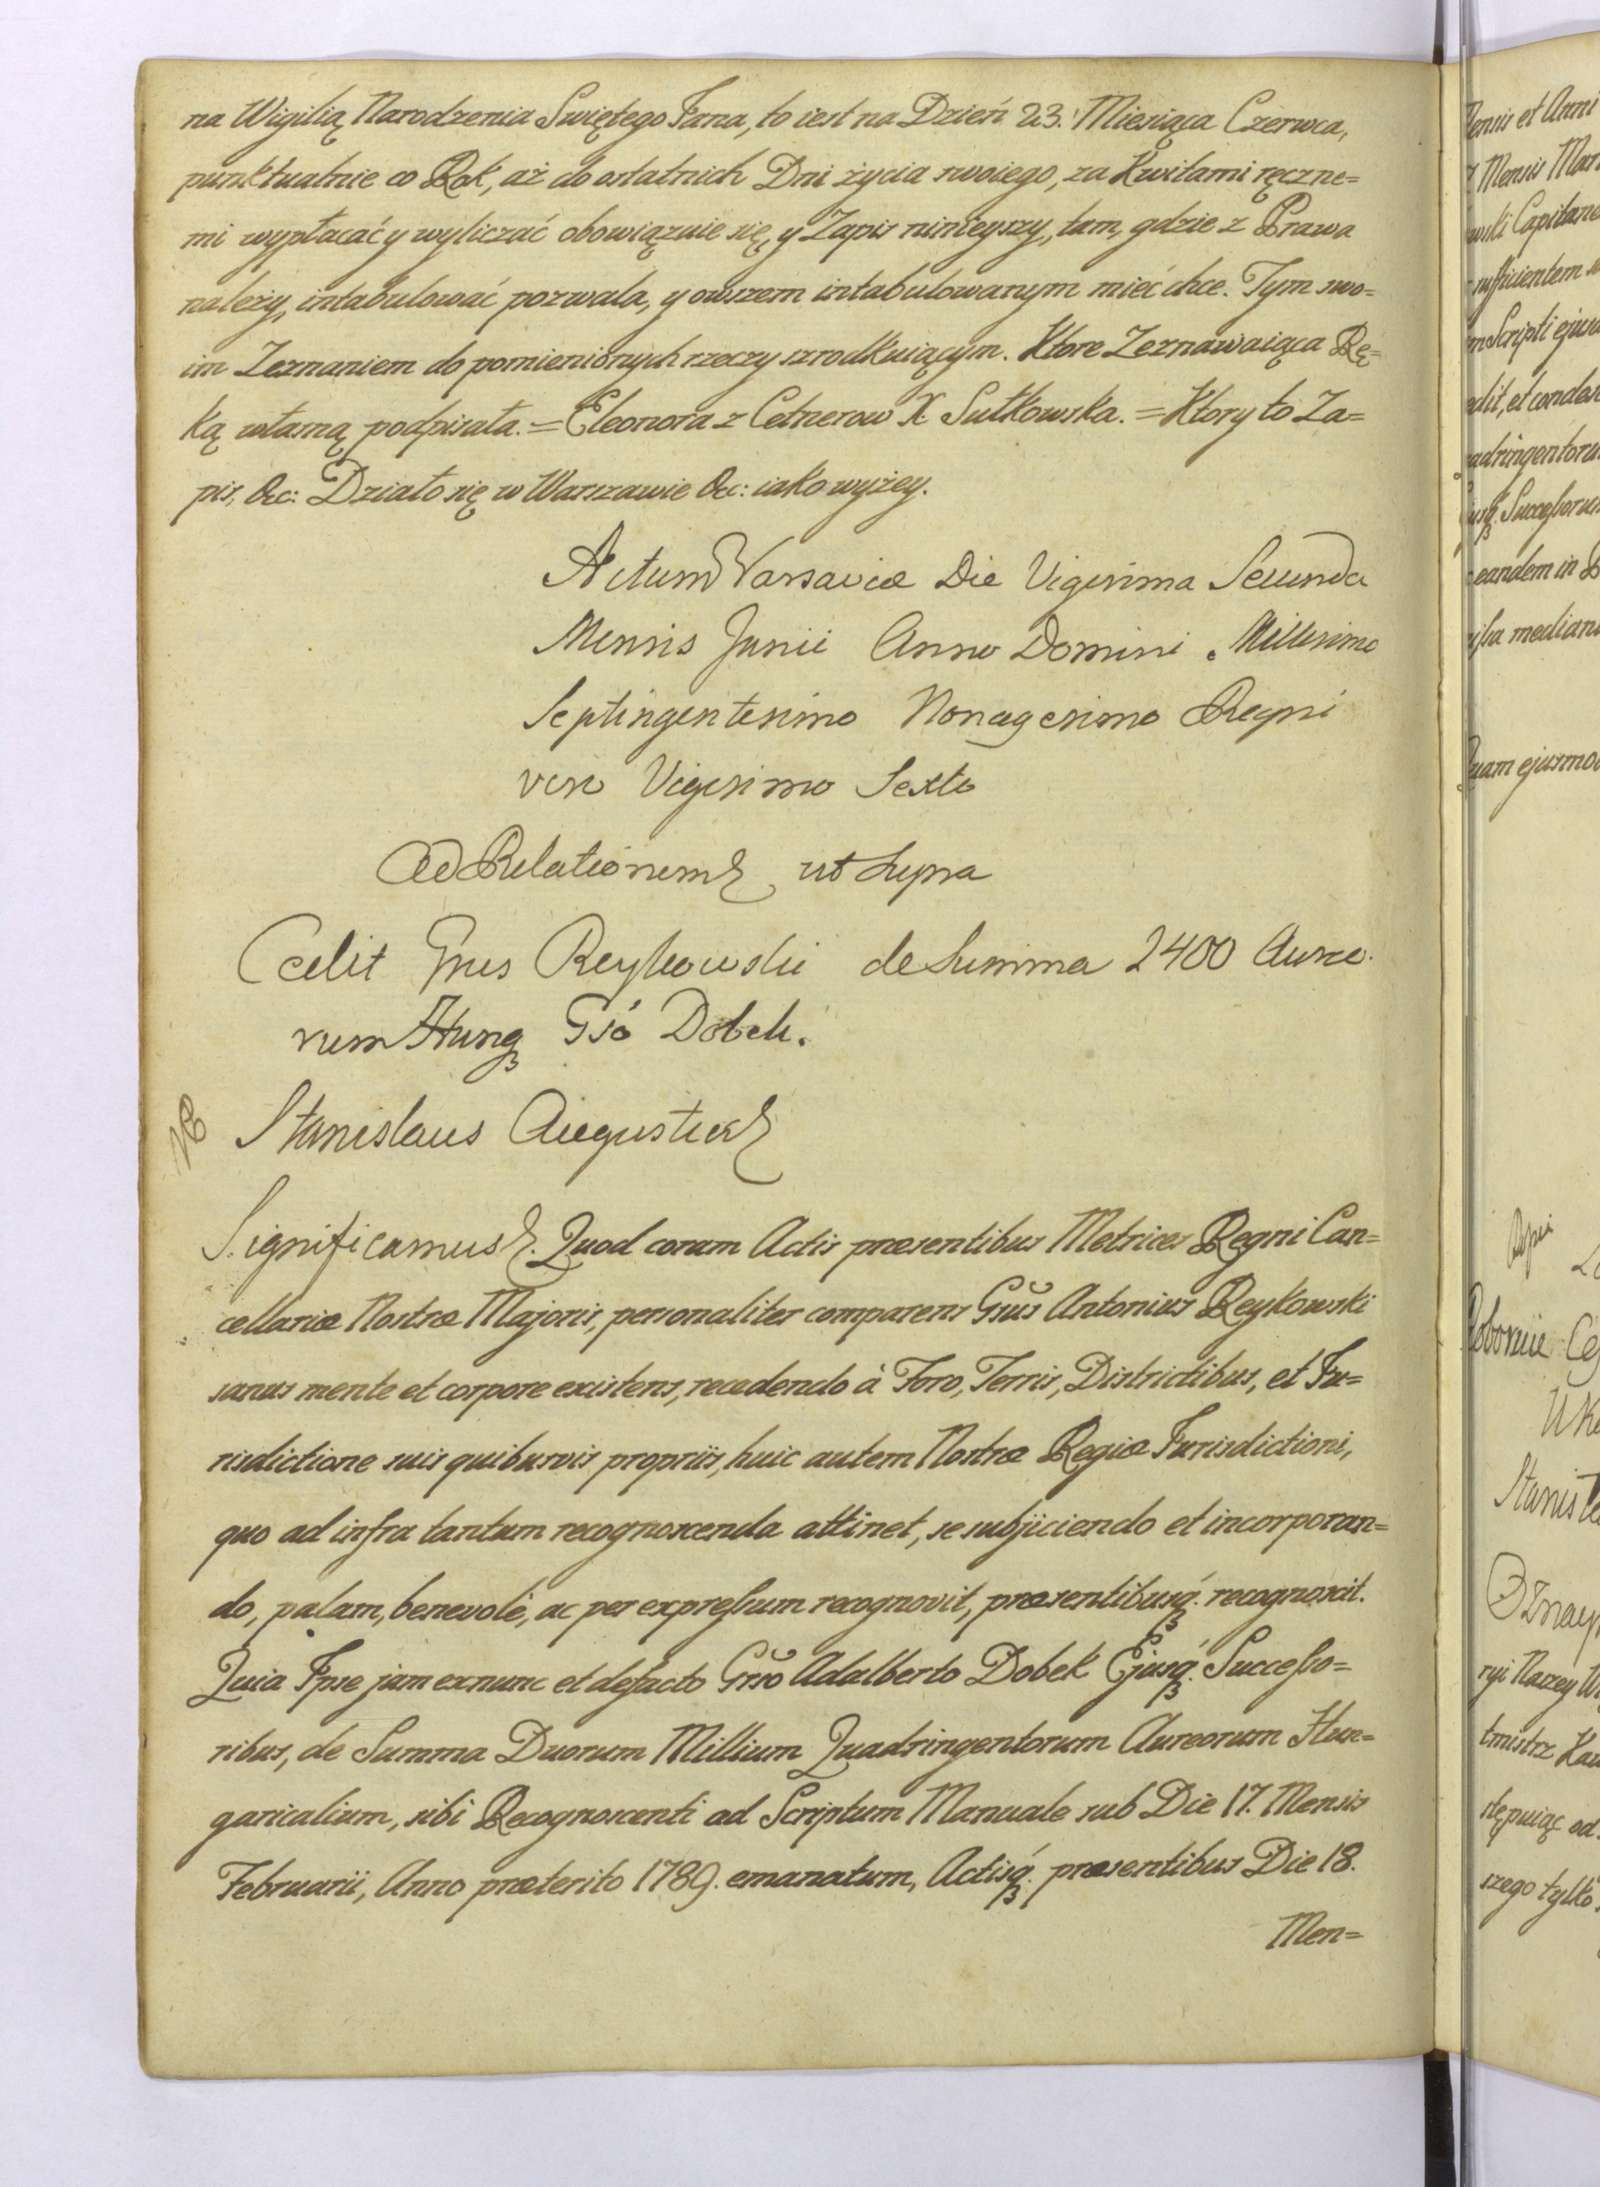 na Wigilią Narodzenia Swiętego Jana, to iest na Dzień 23. Miesiąca Czerwca,
punktualnie co Rok, aż do ostatnich Dni życia swoiego, za Kwitami ręczne=
mi wypłacać y wyliczać obowiązuie się, y Zapis ninieyszy, tam, gdzie z Prawa
należy, intabulować pozwala, y owszem intabulowanym mieć chce. Tym swo=
im Zeznaniem do pomienionych rzeczy szrodkuiącym. Ktore Zeznawaiąca Rę=
ką własną podpisała. = Eleonora z Cetnerow X. Sułkowska. = Ktory to Za=
pis, &c: Działo się w Warszawie &c: iako wyżey.
Actum Varsaviæ Die Vigesima Secunda
Mensis Junii Anno Domini Millesimo
Septingentesimo Nonagesimo Regni
vero Vigesimo Sexto
Ad Relationem ut Supra
Cedit Gnus Reykowski de Summa 2400 Aureo.
rum Hung Gso Dobek.
Stanislaus Augustus
Significamus. Quod coram Actis præsentibus Metrices Regni Can=
cellariæ Nostræ Majoris, personaliter comparens Gsus Antonius Reykowski
sanus mente et corpore existens, recedendo à Foro, Terris, Districtibus, et Ju=
risdictione suis quibusvis propriis, huic autem Nostræ Regiæ Jurisdictioni,
quo ad infra tantum recognoscenda attinet, se subjiciendo et incorporan=
do, palam, benevolè, ac per expressum recognovit, præsentibusq. recognoscit.
Quia Ipse jam exnunc et defacto Gsso Adalberto Dobek Ejusq. Successo=
ribus, de Summa Duorum Millium Quadringentorum Aureorum Hun=
garicalium, sibi Recognoscenti ad Scriptum Manuale sub Die 17. Mensis
Februarii, Anno præterito 1789. emanatum, Actisq. præsentibus Die 18.
Men=